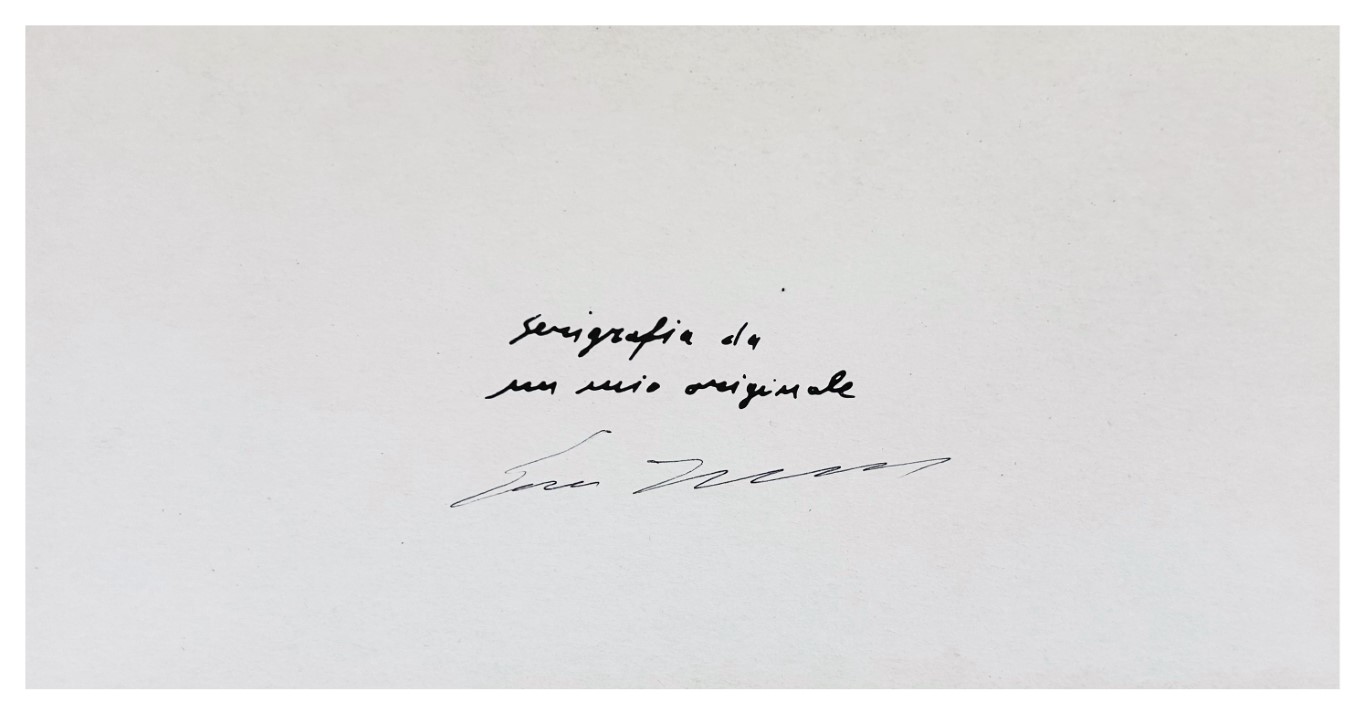 serigrafia da
un mio originale